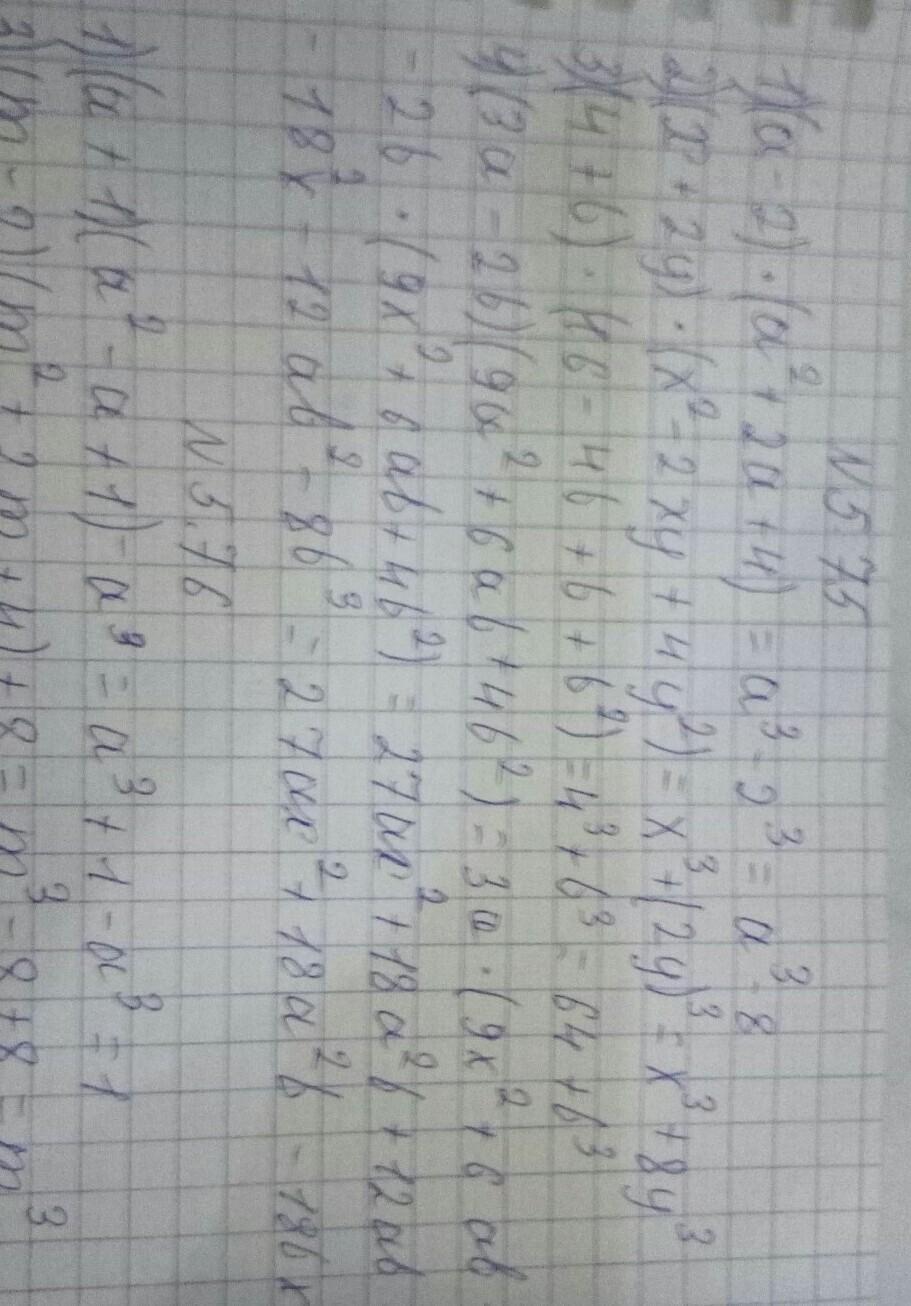 N 5.75
1) (a - 2) · (a² + 2a + 4) = a³ - 2³ = a³ - 8
2) (x + 2y) · (x² - 2xy + 4y²) = x³ + (2y)³ = x³ + 8y³
3) (4 + b) · (16 - 4b + b + b²) = 4³ + b³ = 64 + b³
4) (3a - 2b)(9a² + 6ab + 4b²) = 3a · (9x² + 6ab
- 2b · (9x² + 6ab + 4b²) = 27ax² + 18a²b + 12ab
- 18²x - 12ab² - 8b³ = 27ax² + 18a²b - 18bx
N 5.76
1) (a + 1)(a² - a + 1) - a³ = a³ + 1 - a³ = 1
2) (m - 2)(m² + 2m + 4) + 8 = m³ - 8 + 8 = m³